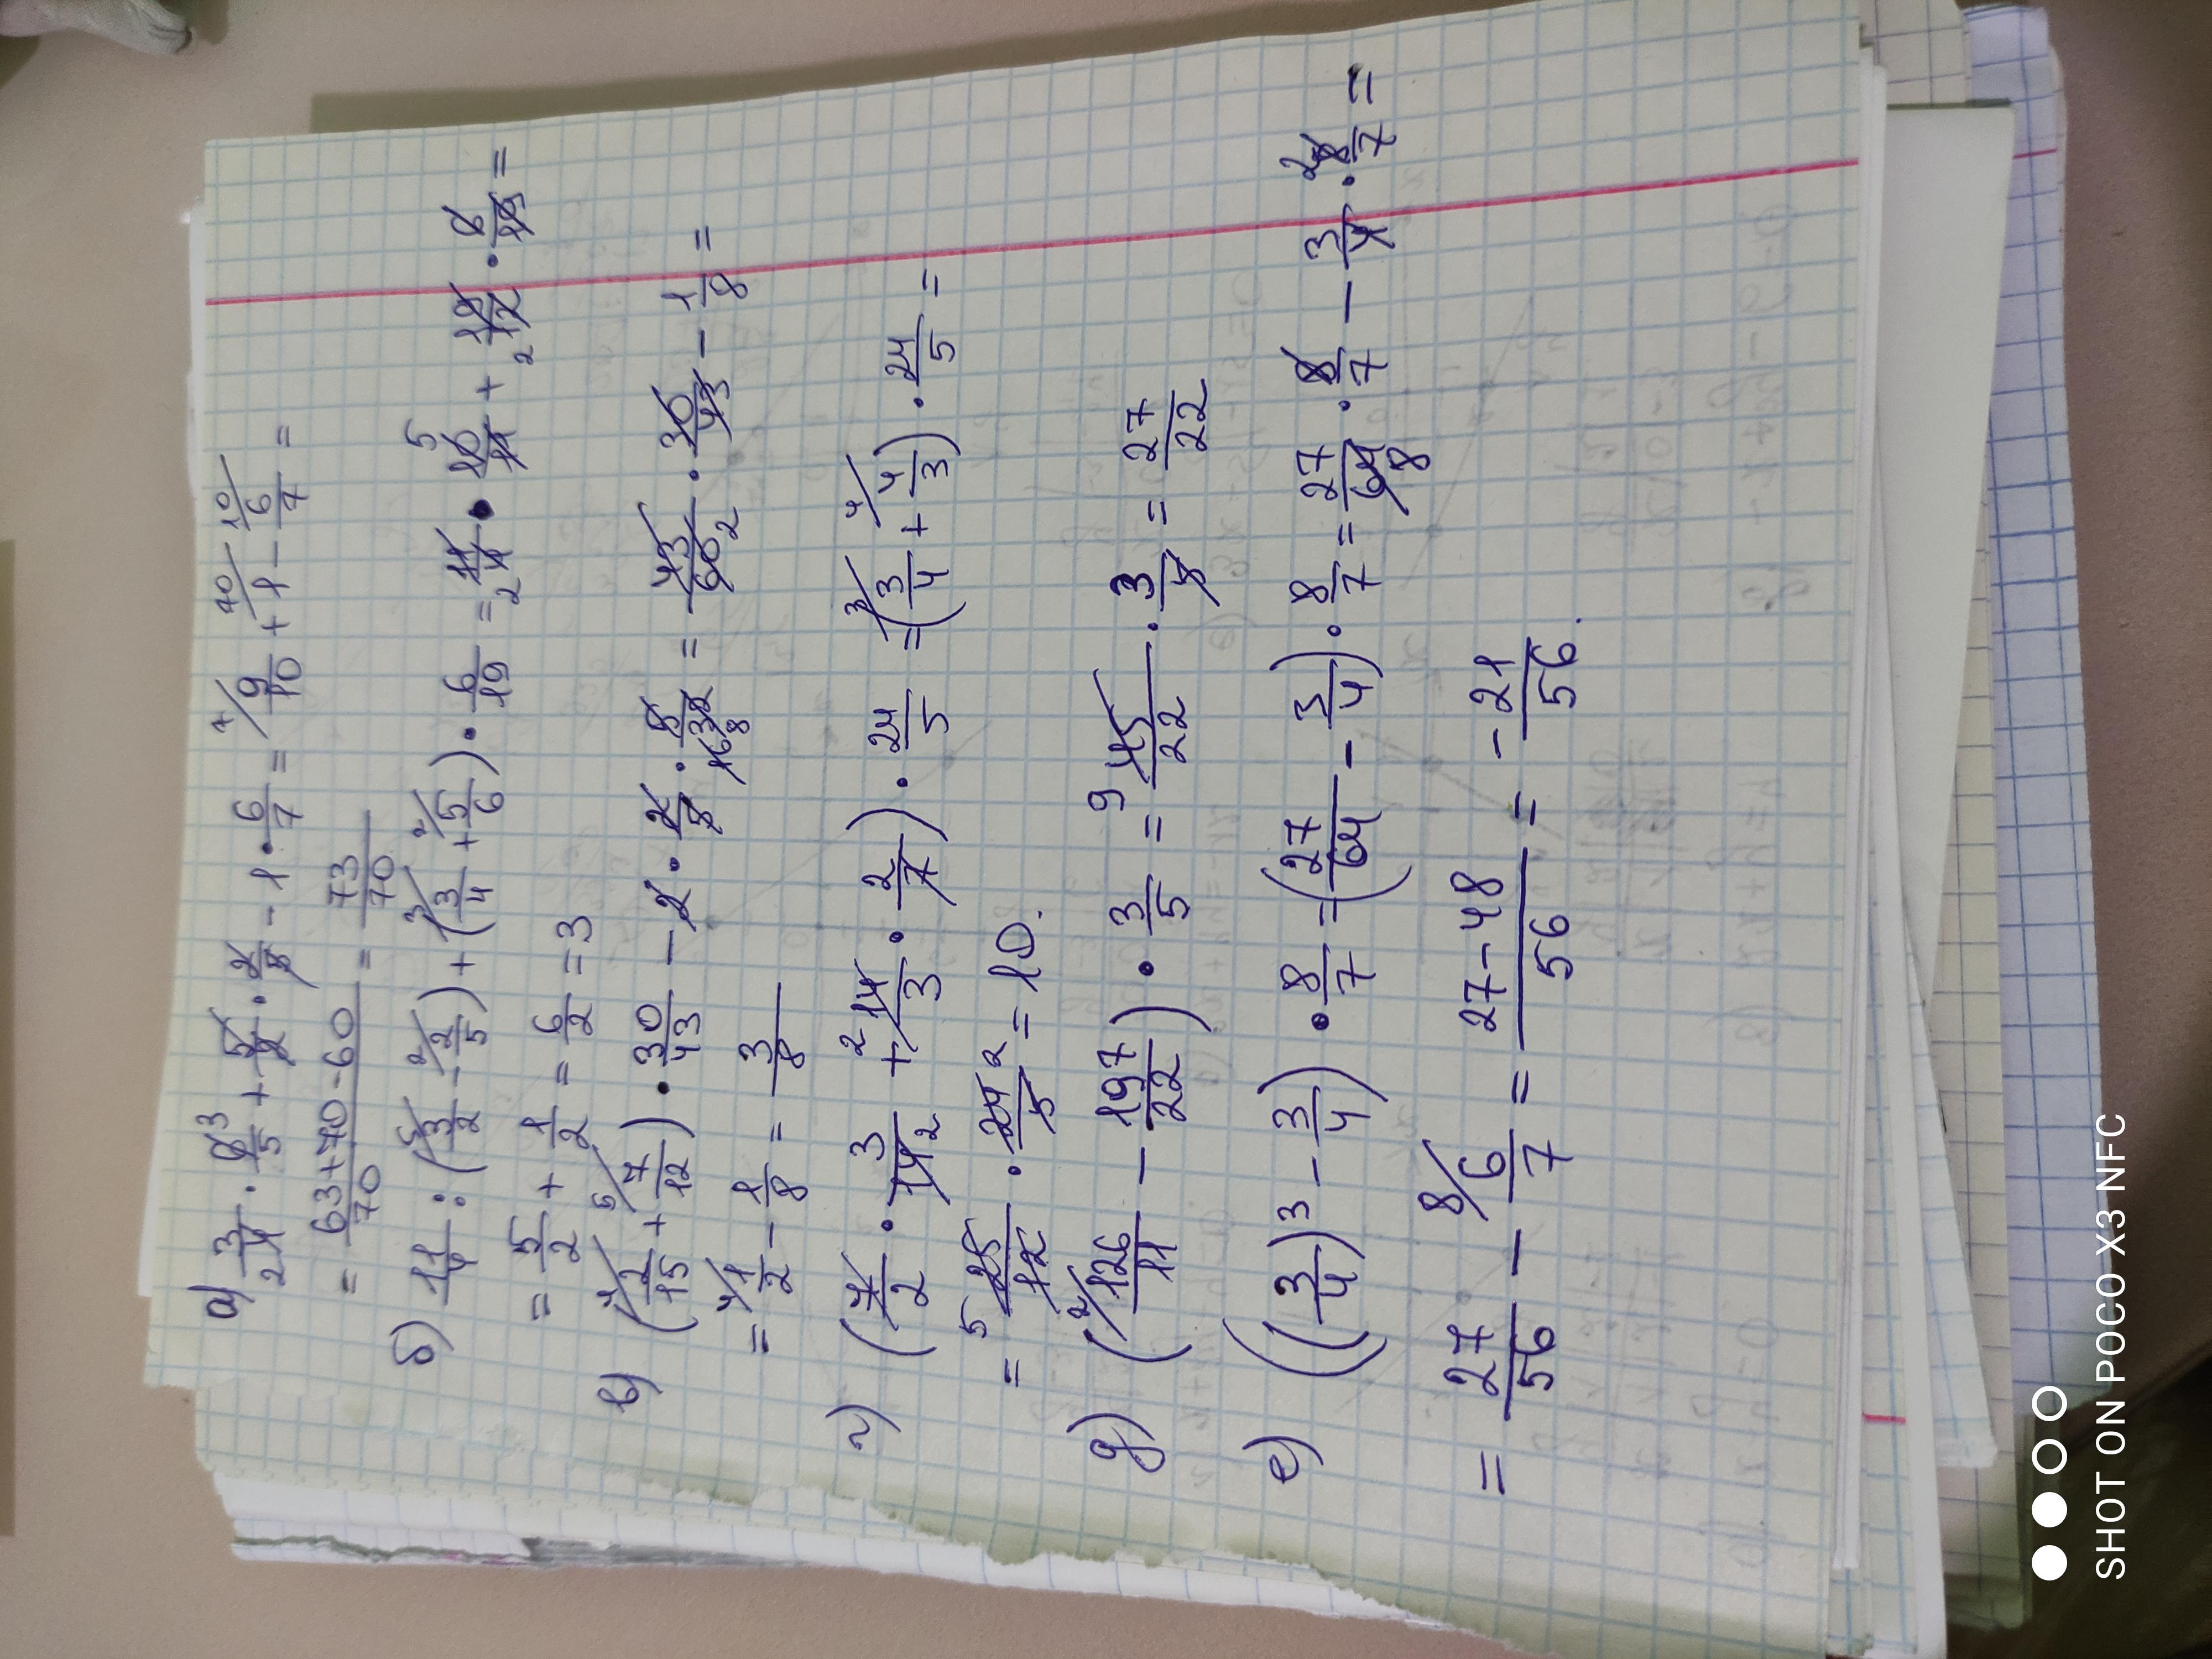 а) 3/24 · 8³/5 + 5/2 · 2/5 − 1 · 6/7 = ⁷/ 9/10 + ⁷⁰/ 1 − ¹⁰/ 6/7 =
= 63+70−60/70 = 73/70
б) 11/4 : (⁵/ 3/2 − ²/ 2/5) + (³/ 3/4 + ²/ 5/6) · 6/19 = 11/₂4 · 10⁵/11 + 19/₂12 · 6/19 =
= 5/2 + 1/2 = 6/2 = 3
в) (⁴/ 2/15 + ⁵/ 7/12) · 30/43 − 2 · 2/5 · 5/32 = 43/60₂ · 30/43 − 1/8 =
= ⁴/ 1/2 − 1/8 = 3/8
г) (7/2 · 3/14₂ + ²14/3 · 2/7) · 24/5 = (³/ 3/4 + ⁴/ 4/3) · 24/5 =
= ⁵25/12 · 24²/5 = 10.
д) (²/ 126/11 − 197/22) · 3/5 = ⁹45/22 · 3/5 = 27/22
е) ((3/4)³ − 3/4) · 8/7 = (27/64 − 3/4) · 8/7 = 27/64₈ · 8/7 − 3/4 · ²8/7 =
= 27/56 − ⁸/ 6/7 = 27−48/56 = −21/56.
SHOT ON POCO X3 NFC